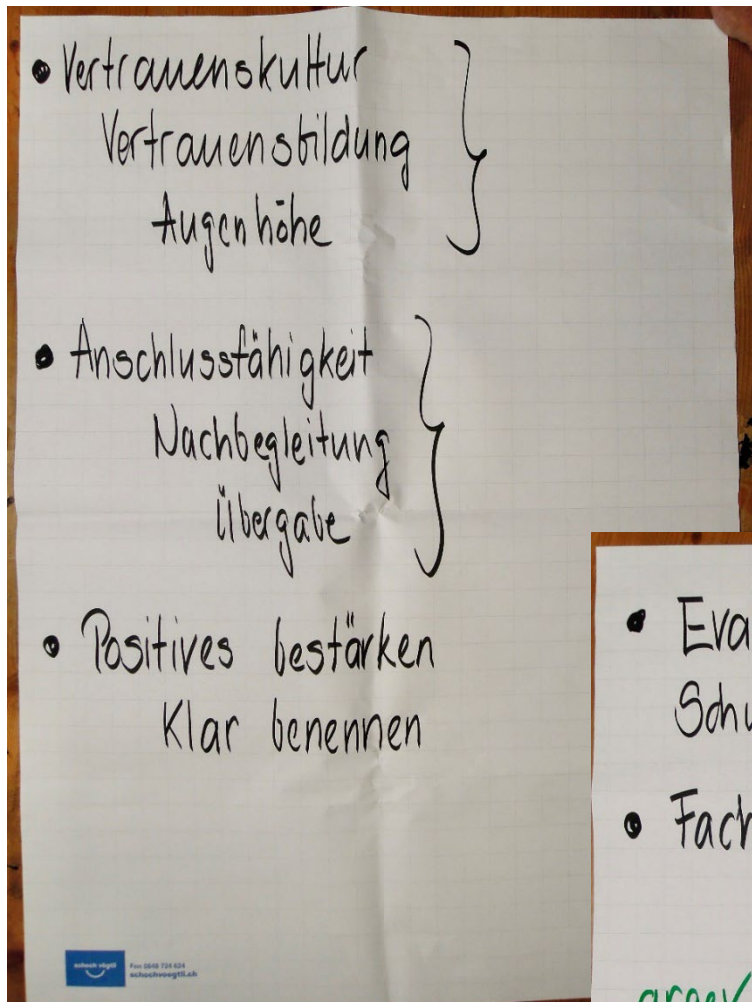 • Vertrauenskultur
Vertrauensbildung
Augenhöhe
• Anschlussfähigkeit
Nachbegleitung
Übergabe
• Positives bestärken
Klar benennen
schoch vögtli
Fon 0848 724 624
schochvoegtli.ch
• Eva
Schu
• Fach
argev